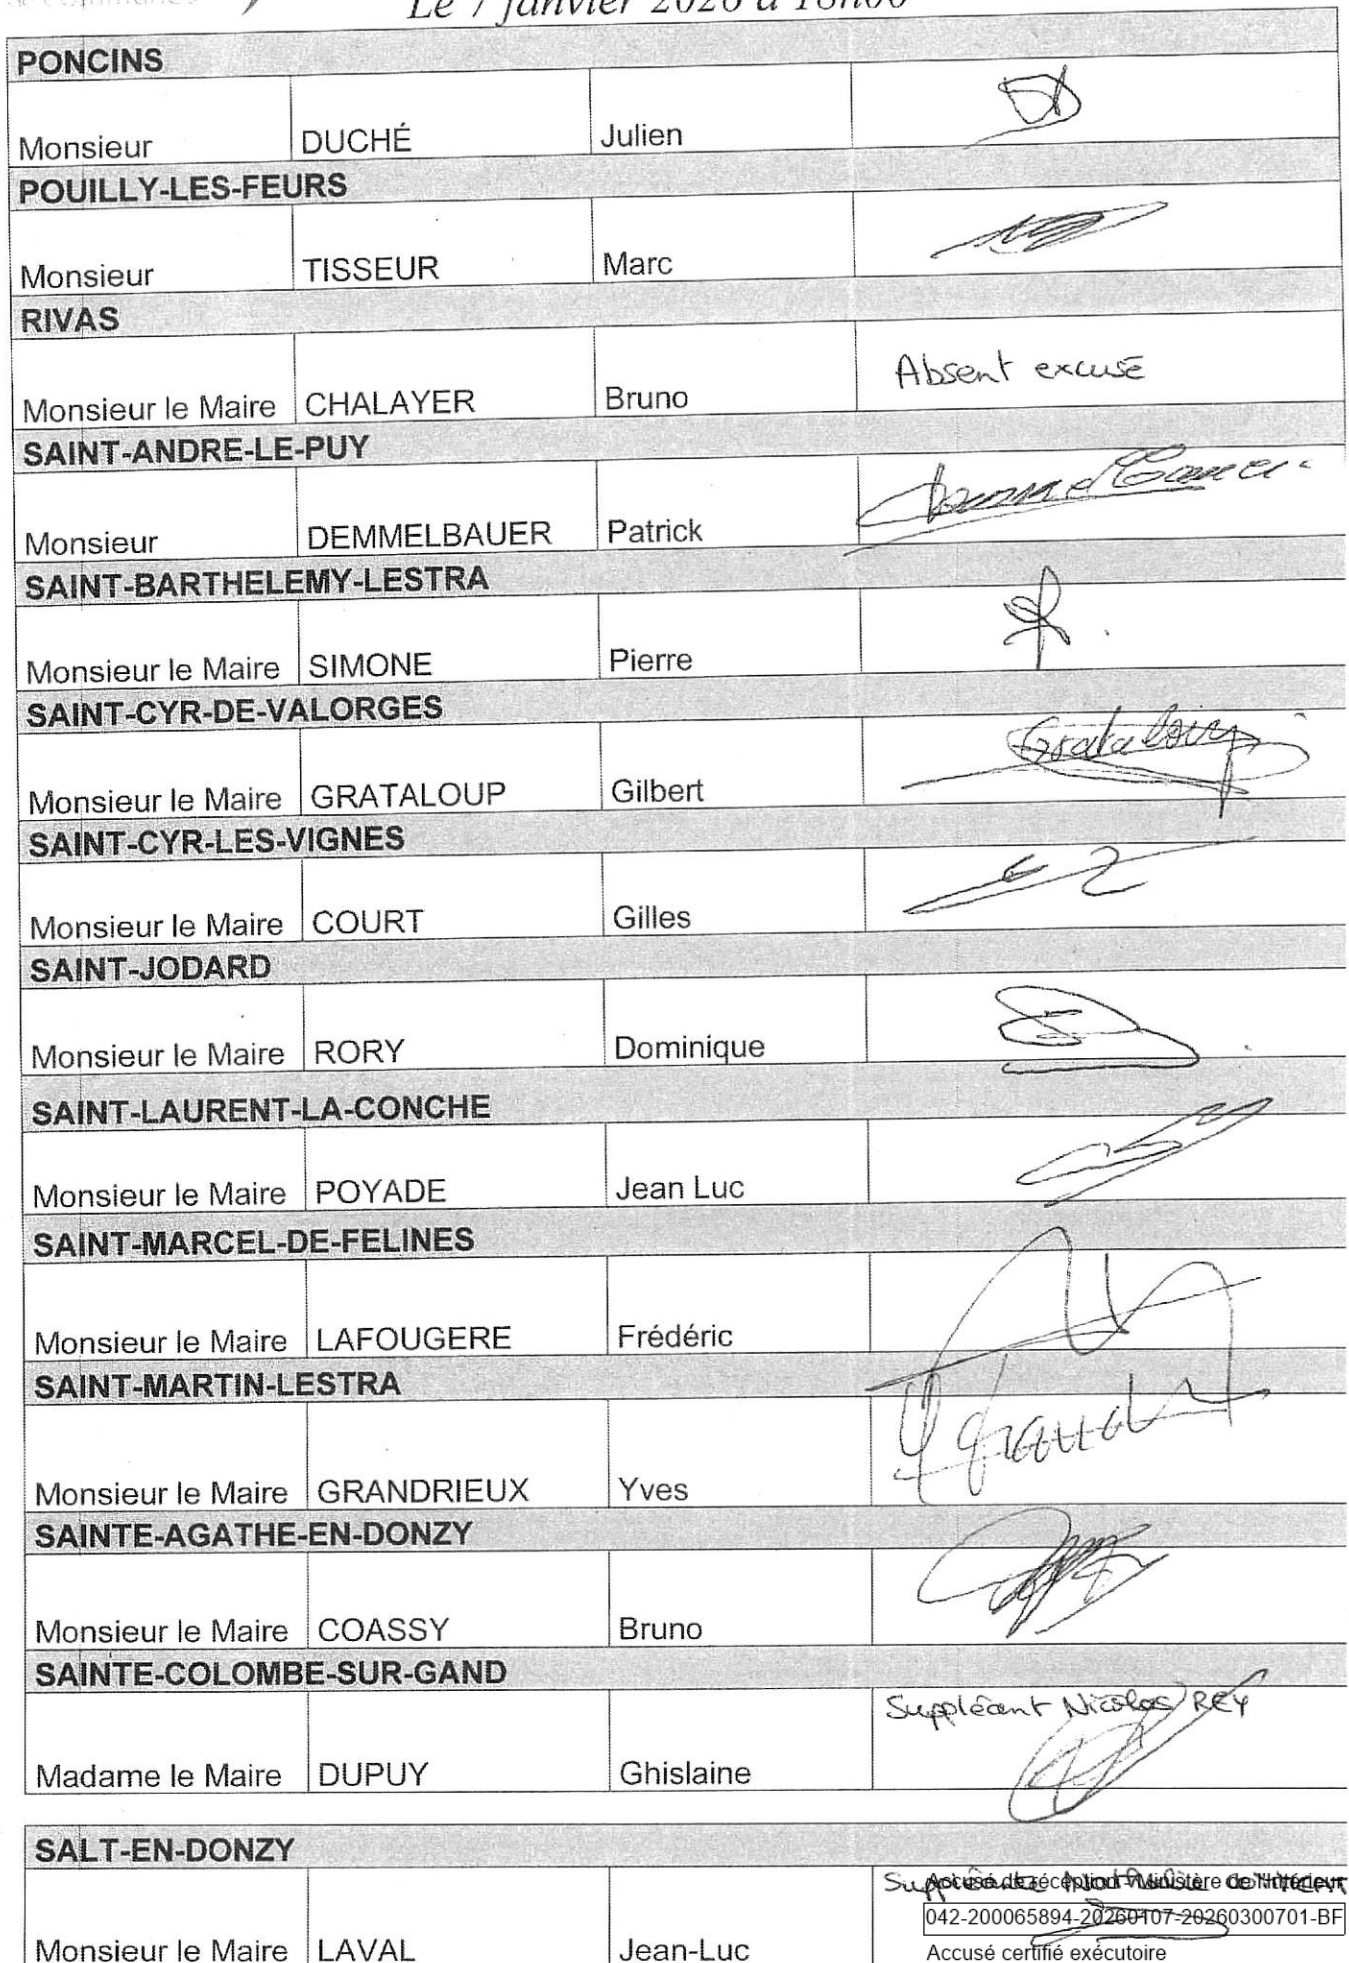 Le 7 janvier 2026 à 18h00
PONCINS
Monsieur DUCHÉ Julien
POUILLY-LES-FEURS
Monsieur TISSEUR Marc
RIVAS
Monsieur le Maire CHALAYER Bruno Absent excusé
SAINT-ANDRE-LE-PUY
Monsieur DEMMELBAUER Patrick
SAINT-BARTHELEMY-LESTRA
Monsieur le Maire SIMONE Pierre
SAINT-CYR-DE-VALORGES
Monsieur le Maire GRATALOUP Gilbert Grataloup
SAINT-CYR-LES-VIGNES
Monsieur le Maire COURT Gilles
SAINT-JODARD
Monsieur le Maire RORY Dominique
SAINT-LAURENT-LA-CONCHE
Monsieur le Maire POYADE Jean Luc
SAINT-MARCEL-DE-FELINES
Monsieur le Maire LAFOUGERE Frédéric
SAINT-MARTIN-LESTRA
Monsieur le Maire GRANDRIEUX Yves
SAINTE-AGATHE-EN-DONZY
Monsieur le Maire COASSY Bruno
SAINTE-COLOMBE-SUR-GAND
Suppléant Nicolas REY
Madame le Maire DUPUY Ghislaine
SALT-EN-DONZY
Suppléante
Accusé de réception - Ministère de l'Intérieur
042-200065894-20260107-20260300701-BF
Monsieur le Maire LAVAL Jean-Luc
Accusé certifié exécutoire